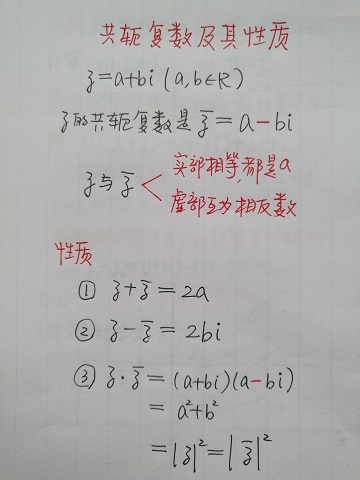 共轭复数及其性质
z=a+bi (a,b∈R)
z的共轭复数是 z̄=a-bi
z与z̄ < 实部相等,都是a
虚部互为相反数
性质
① z+z̄=2a
② z-z̄=2bi
③ z·z̄=(a+bi)(a-bi)
=a²+b²
=|z|²=|z̄|²